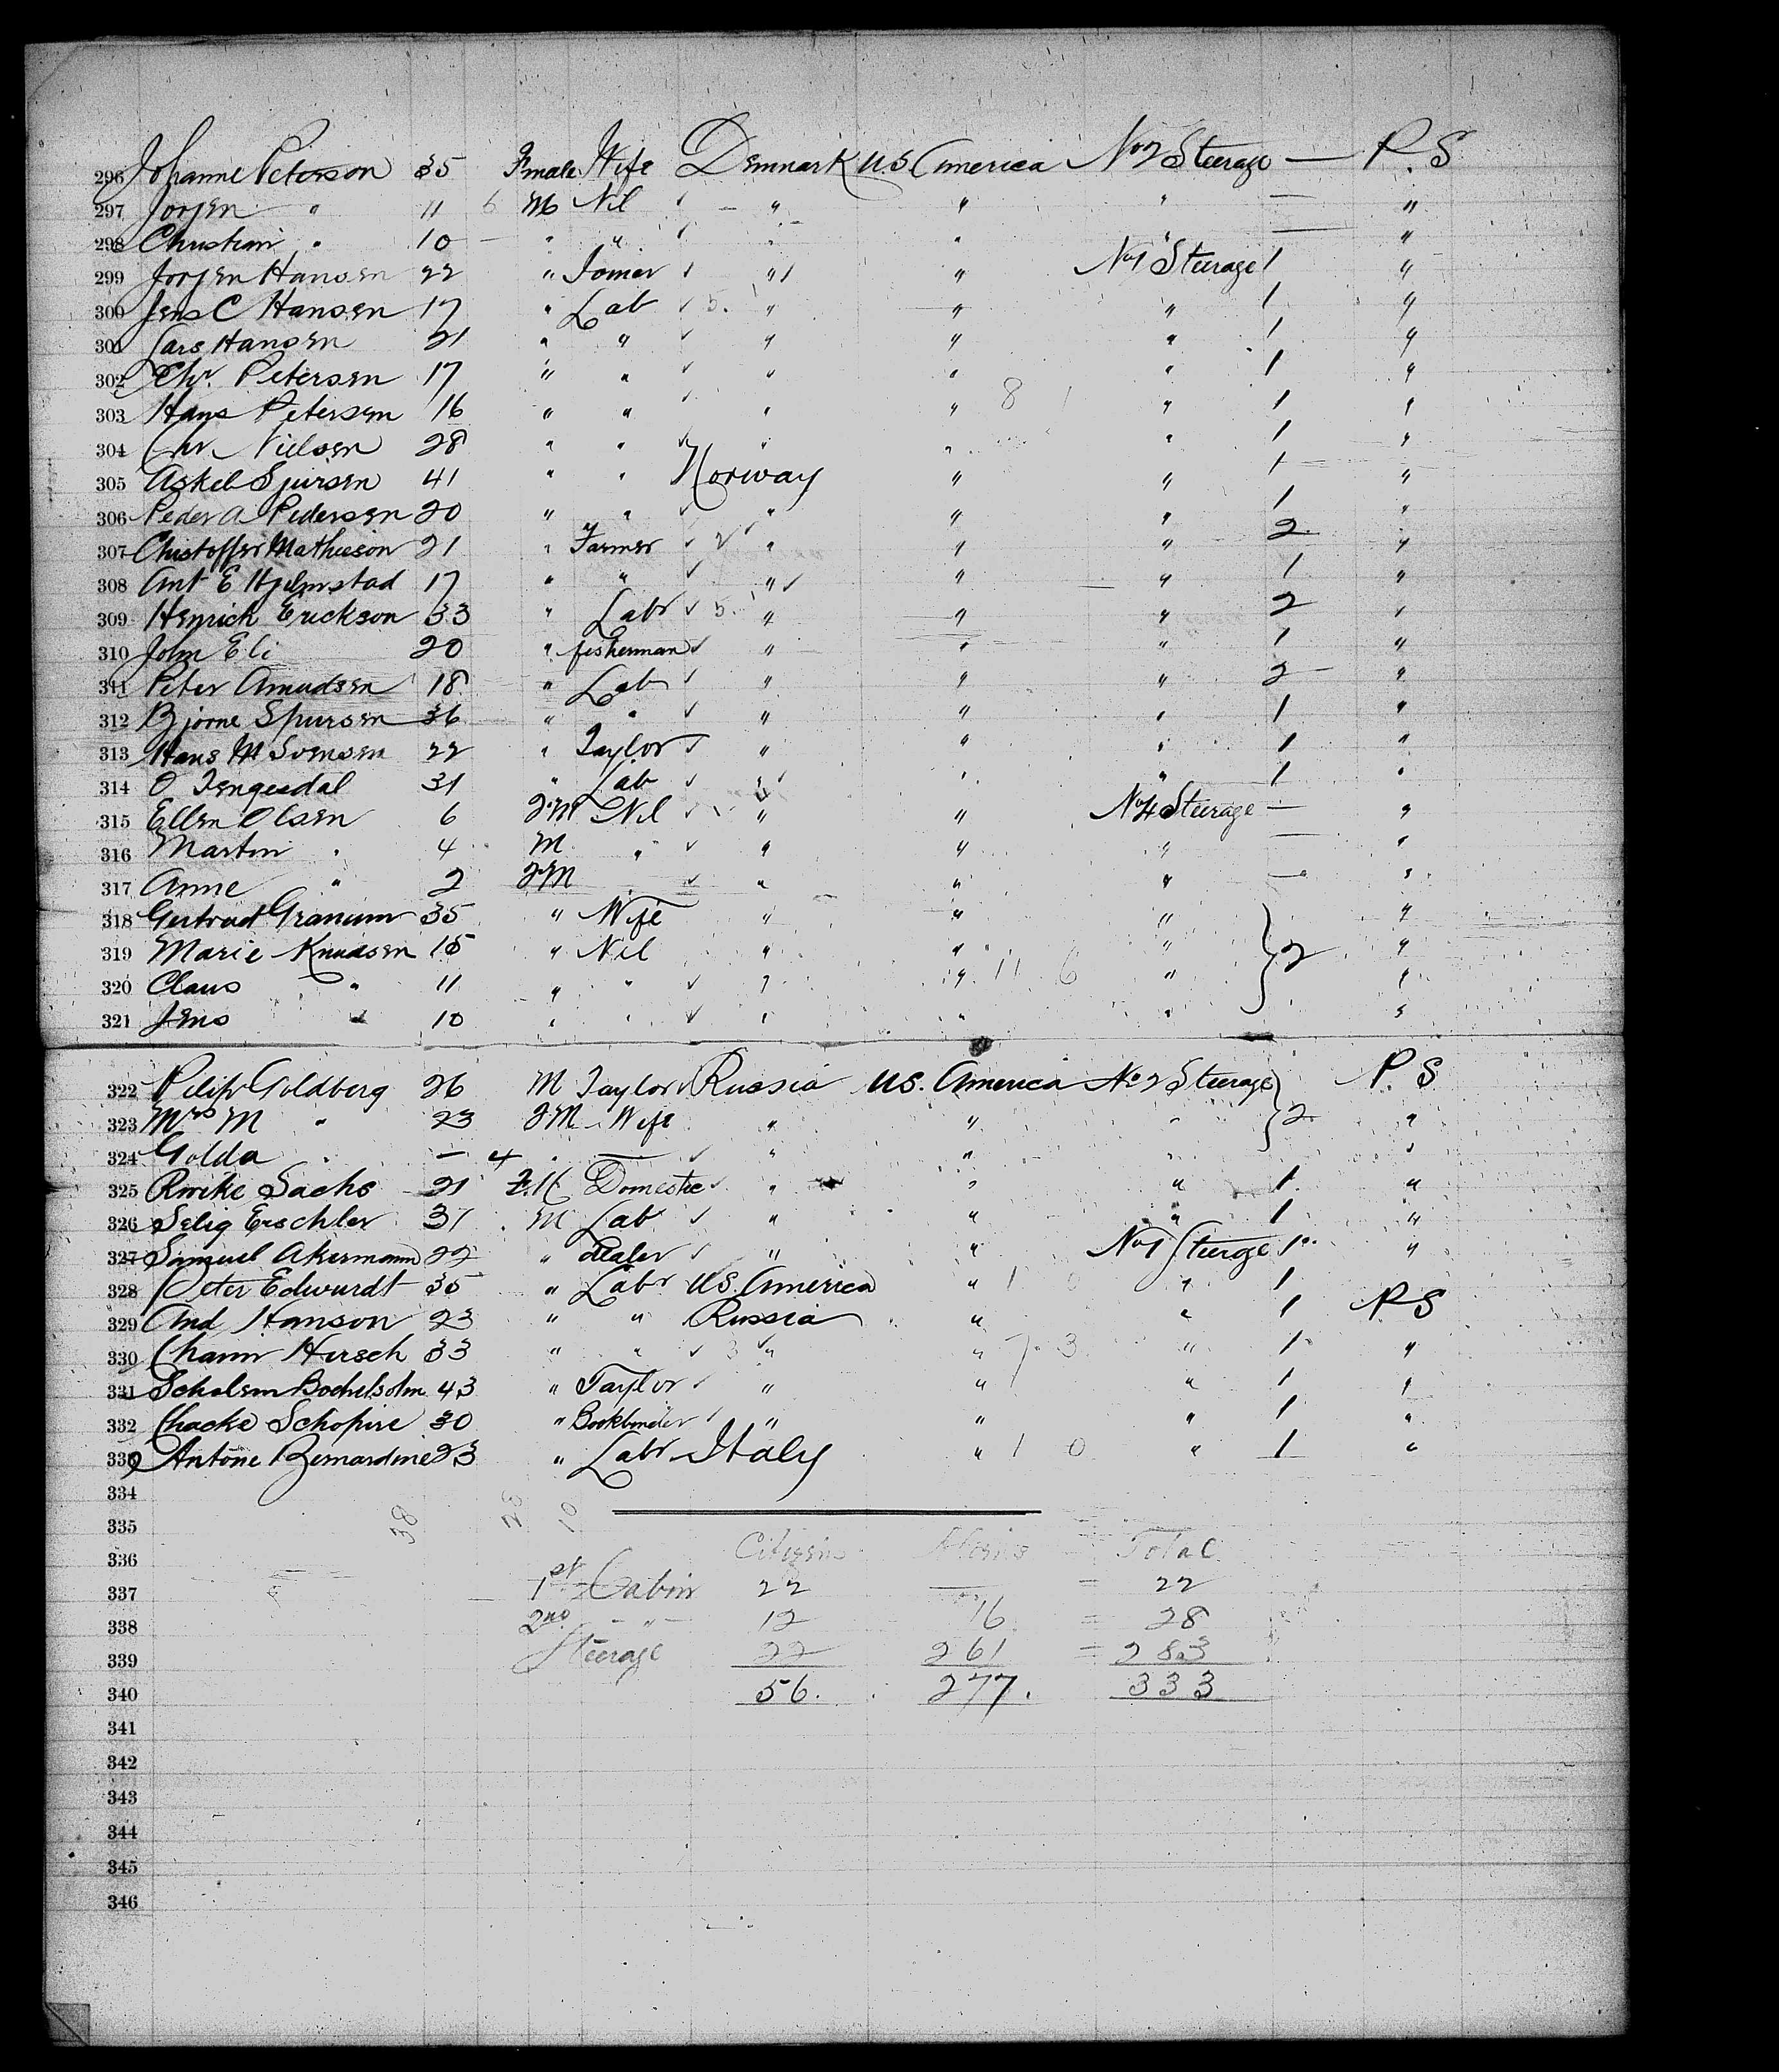 296 Johanne Peterson 35 Fmale Wife Denmark U.S America No 2 Steerage — P. S
297 Jorjen " 11 M Nil " " " — "
298 Christian " 10 " " " " " — "
299 Jorjen Hansen 22 " " " No 1 Steerage 1 "
300 Jens C Hansen 17 " Lab 5. " " " 1 "
301 Lars Hansen 21 " " " " " 1 "
302 Chr. Petersen 17 " " " " " 1 "
303 Hans Petersen 16 " " " " 8 1 " 1 "
304 Chr Nielsen 28 " " " " " 1 "
305 Askel Sjursen 41 " " Norway " " 1 "
306 Peder A Pedersen 20 " " " " " 1 "
307 Chistoffer Mathieson 21 " Farmer 2 " " " 2 "
308 Ant E Hjelmstad 17 " " " " " 1 "
309 Henrich Erickson 33 " Labr 5. " " " 2 "
310 John Eli 20 " fisherman " " " 1 "
311 Peter Amudsen 18 " Lab " " " 2 "
312 Bjorne Spursen 36 " " " " " 1 "
313 Hans M Svensen 22 " Taylor " " " 1 "
314 O 31 " Lab " " " 1 "
315 Ellen Olsen 6 F.M Nil " " No 4 Steerage — "
316 Martin " 4 M " " " " — "
317 Anne " 2 F.M " " " — "
318 Gertrud Granum 35 " Wife " " " "
319 Marie Knudsen 15 " Nil " " " } 2 "
320 Claus " 11 " " " " 11 6 " "
321 Jens " 10 " " " " " "
322 Goldberg 26 M Taylor Russia U.S. America No 2 Steerage } P. S
323 Mrs M " 23 F.M Wife " " " } 2 "
324 Golda " — 4 " — " " " "
325 Sachs 21 Domestic " " " 1 "
326 Selig Erschler 31 M Lab " " " 1 "
327 Samuel Akermann 22 " dealer " " No 1 Steerage 1 "
328 Peter Edwurdt 35 " Labr U.S. America " 1 0 " 1
329 And Hanson 23 " " Russia " " 1 P S
330 Chaim Hirsch 33 " " 3 " " 7 3 " 1 "
331 Scholem 43 " Taylor " " " 1 "
332 Chacke Schopire 30 " Bookbinder " " " 1 "
333 Antone Bernardine 23 " Labr Italy " 1 0 " 1 "
334
335 38 28 10
336 Citizens Aliens Total
337 1st Cabin 22 — = 22
338 2nd " 12 16 = 28
339 Steerage 22 261 = 283
340 56. 277. 333
341
342
343
344
345
346